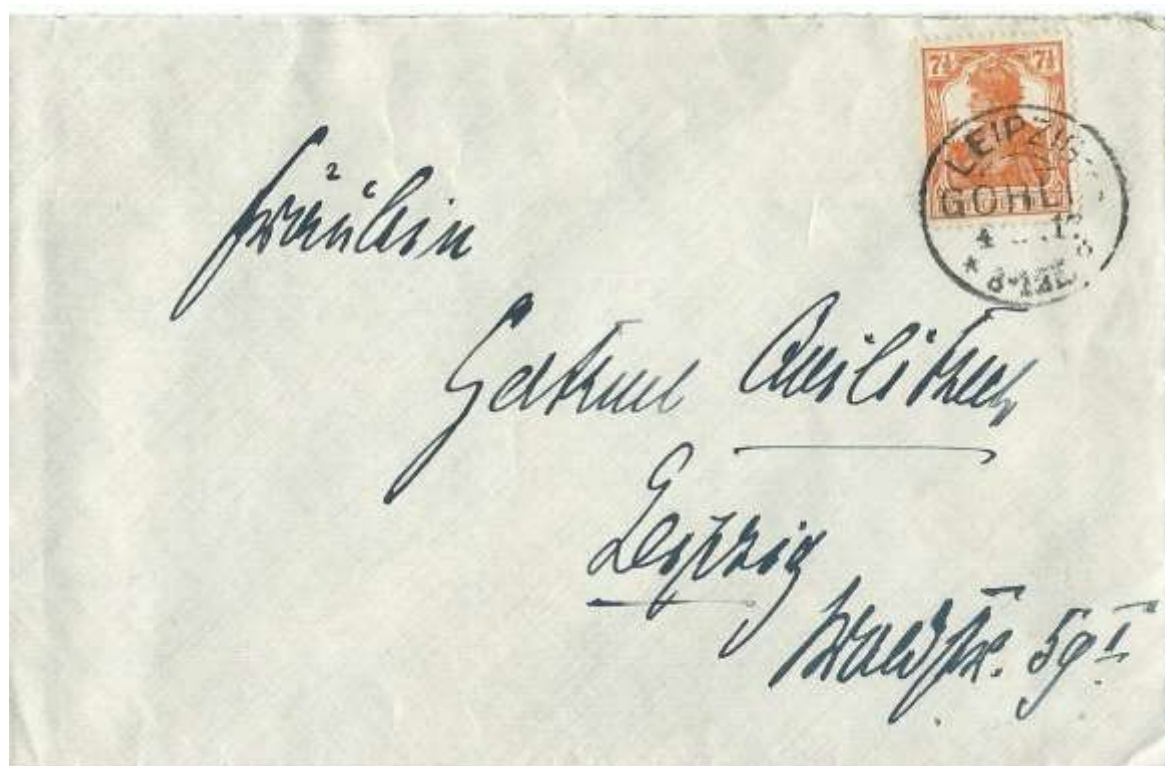 7½ 7½
LEIPZIG-
GOHLI
Fräulein
Gertrud
Leipzig
Waldstr. 59 I